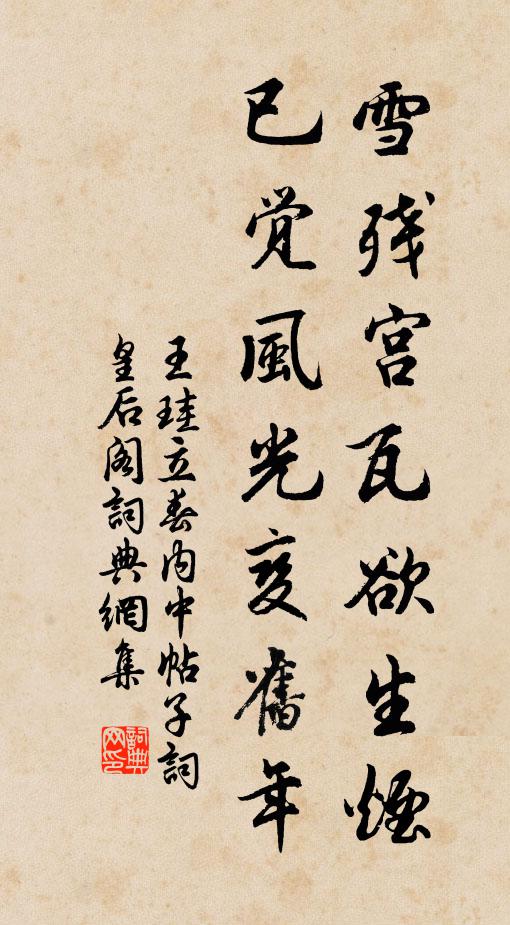 雪残宫瓦欲生煙
已觉風光变舊年
王珪立春内中帖子詞
皇后阁詞典網集
詞典网印